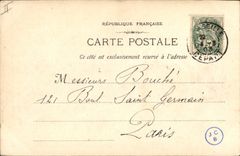 RÉPUBLIQUE FRANÇAISE
CARTE POSTALE
Ce côté est exclusivement réservé à l'adresse
Messieurs Bouché
121 Boul Saint Germain
Paris
J C
6